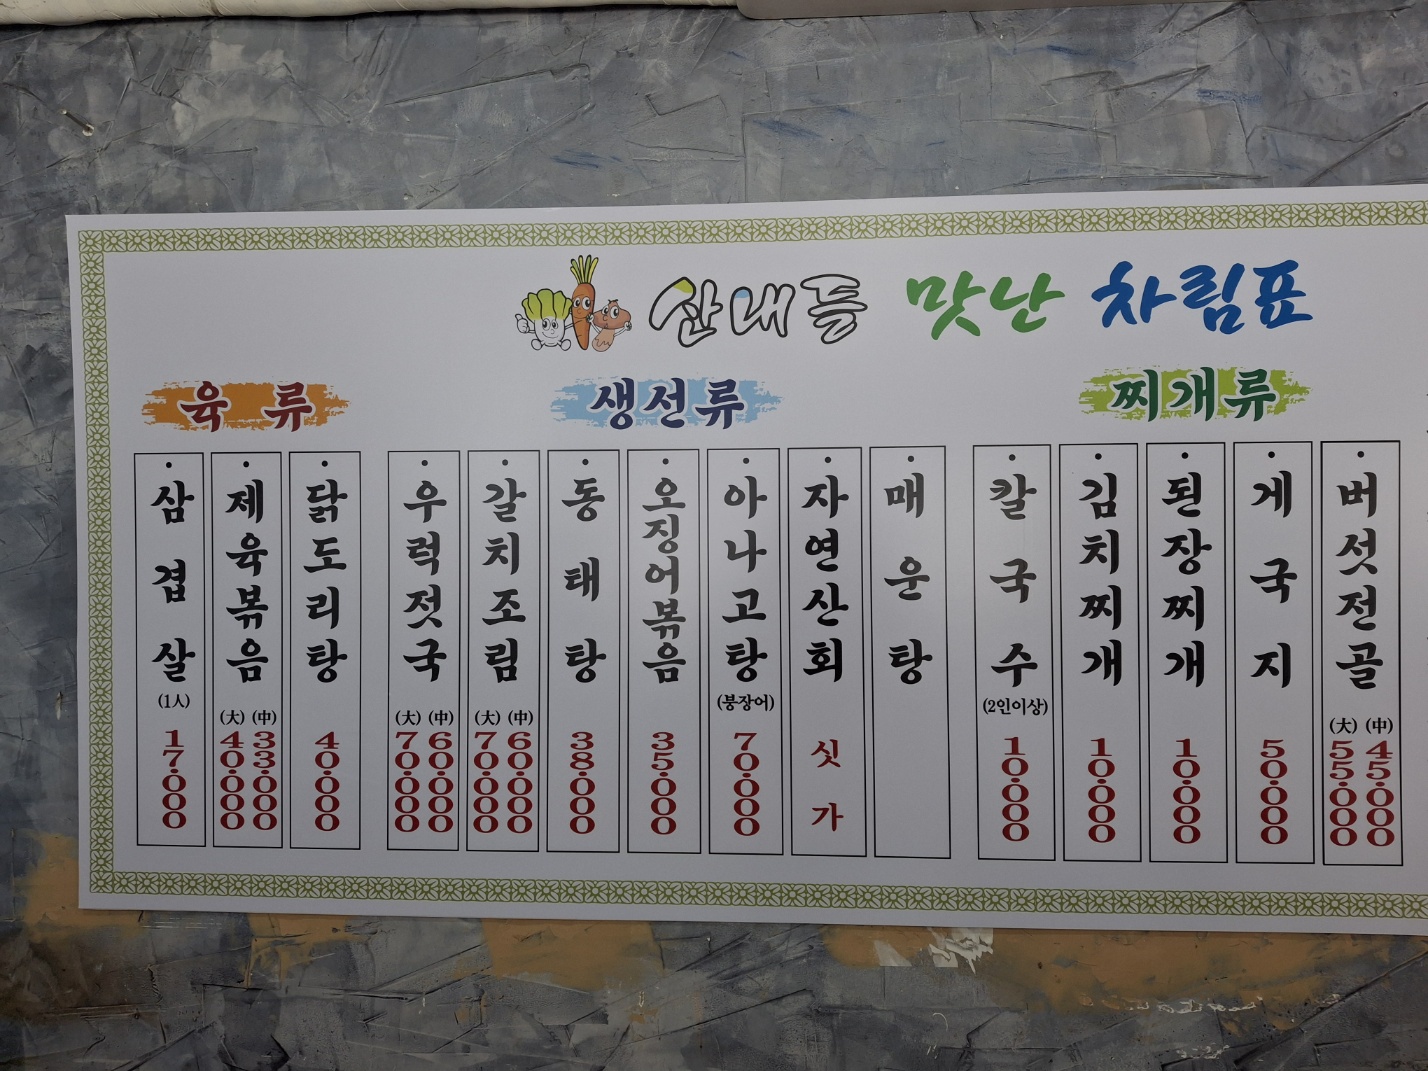 산내들 맛난 차림표
육류
삼겹살
(1人)
17.000
제육볶음
(大) (中)
40.000 33.000
닭도리탕
40.000
생선류
우럭젓국
(大) (中)
70.000 60.000
갈치조림
(大) (中)
70.000 60.000
동태탕
38.000
오징어볶음
35.000
아나고탕
(붕장어)
70.000
자연산회
싯가
매운탕
찌개류
칼국수
(2인이상)
10.000
김치찌개
10.000
된장찌개
10.000
게국지
50.000
버섯전골
(大) (中)
55.000 45.000